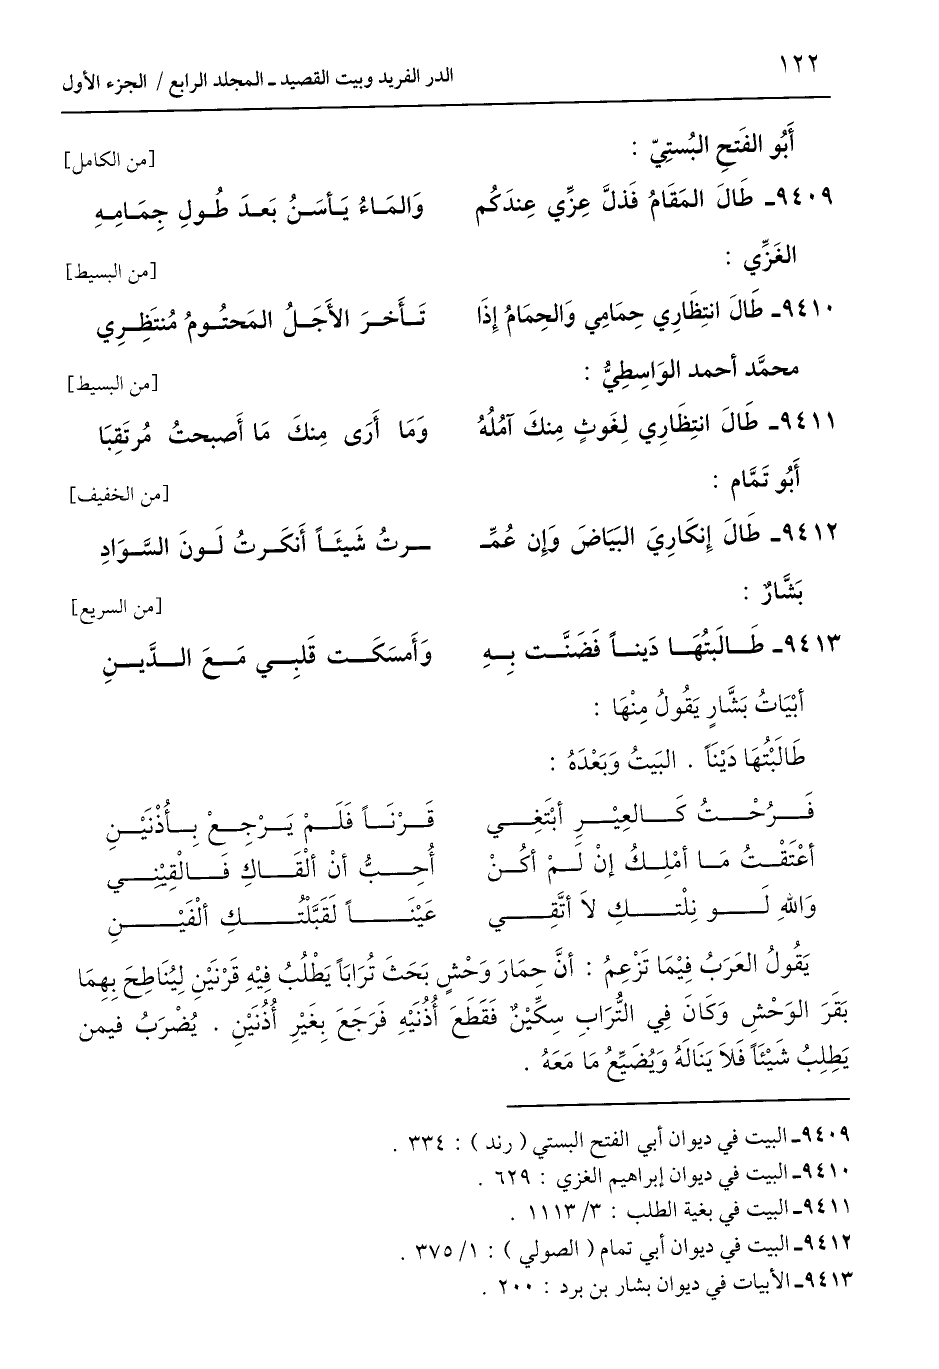 ١٢٢
الدر الفريد وبيت القصيد ـ المجلد الرابع / الجزء الأول
أَبُو الفَتحِ البُستِيّ :
[من الكامل]
٩٤٠٩ـ طَالَ المَقَامُ فَذلَّ عِزِّي عِندَكُم وَالمَاءُ يَأسَنُ بَعدَ طُولِ جِمَامِهِ
الغَزِّي :
[من البسيط]
٩٤١٠ـ طَالَ انتِظَارِي حِمَامِي وَالحِمَامُ إِذَا تَأَخرَ الأَجَلُ المَحتُومُ مُنتَظِرِي
محمَّد أحمد الوَاسِطِيُّ :
[من البسيط]
٩٤١١ـ طَالَ انتِظَارِي لِغَوثٍ مِنكَ آمُلُهُ وَمَا أَرَى مِنكَ مَا أَصبحتُ مُرتَقِبَا
أَبُو تَمَّام :
[من الخفيف]
٩٤١٢ـ طَالَ إِنكَارِيَ البَيَاضَ وَإِن عُمِّـ ـرتُ شَيئَاً أَنكَرتُ لَونَ السَّوَادِ
بَشَّارٌ :
[من السريع]
٩٤١٣ـ طَالَبتُهَا دَيناً فَضَنَّت بِهِ وَأَمسَكَت قَلبِي مَعَ الدَّينِ
أبْيَاتُ بَشَّارٍ يَقُولُ مِنْهَا :
طَالَبْتُهَا دَيْنَاً . البَيتُ وَبَعْدَهُ :
فَرُحْتُ كَالعِيْرِ أبْتَغِي قَرْنَاً فَلَمْ يَرْجِعْ بِأُذْنَيْنِ
أعْتَقْتُ مَا أمْلِكُ إنْ لَمْ أكُنْ أُحِبُّ أنْ ألْقَاكِ فَالْقِيْنِي
وَاللهِ لَو نِلتكِ لاَ أتَّقِي عَيْنَاً لَقَبَّلْتُكِ ألْفَيْنِ
يَقُولُ العَرَبُ فِيْمَا تَزْعِمُ : أنَّ حِمَارَ وَحْشٍ بَحَثَ تُرَابَاً يَطْلُبُ فِيْهِ قَرْنَيْنِ لِيُنَاطِحَ بِهِمَا
بَقَرَ الوَحْشِ وَكَانَ فِي التُّرَابِ سِكِّيْنٌ فَقَطَعَ أُذُنَيْهِ فَرَجَعَ بِغَيْرِ أُذُنَيْنِ . يُضْرَبُ فيمن
يَطلِبُ شَيْئَاً فَلاَ يَنَالَهُ وَيُضَيِّعُ مَا مَعَهُ .
٩٤٠٩ـ البيت في ديوان أبي الفتح البستي ( رند ) : ٣٣٤ .
٩٤١٠ـ البيت في ديوان إبراهيم الغزي : ٦٢٩ .
٩٤١١ـ البيت في بغية الطلب : ٣/ ١١١٣ .
٩٤١٢ـ البيت في ديوان أبي تمام ( الصولي ) : ١/ ٣٧٥ .
٩٤١٣ـ الأبيات في ديوان بشار بن برد : ٢٠٠ .